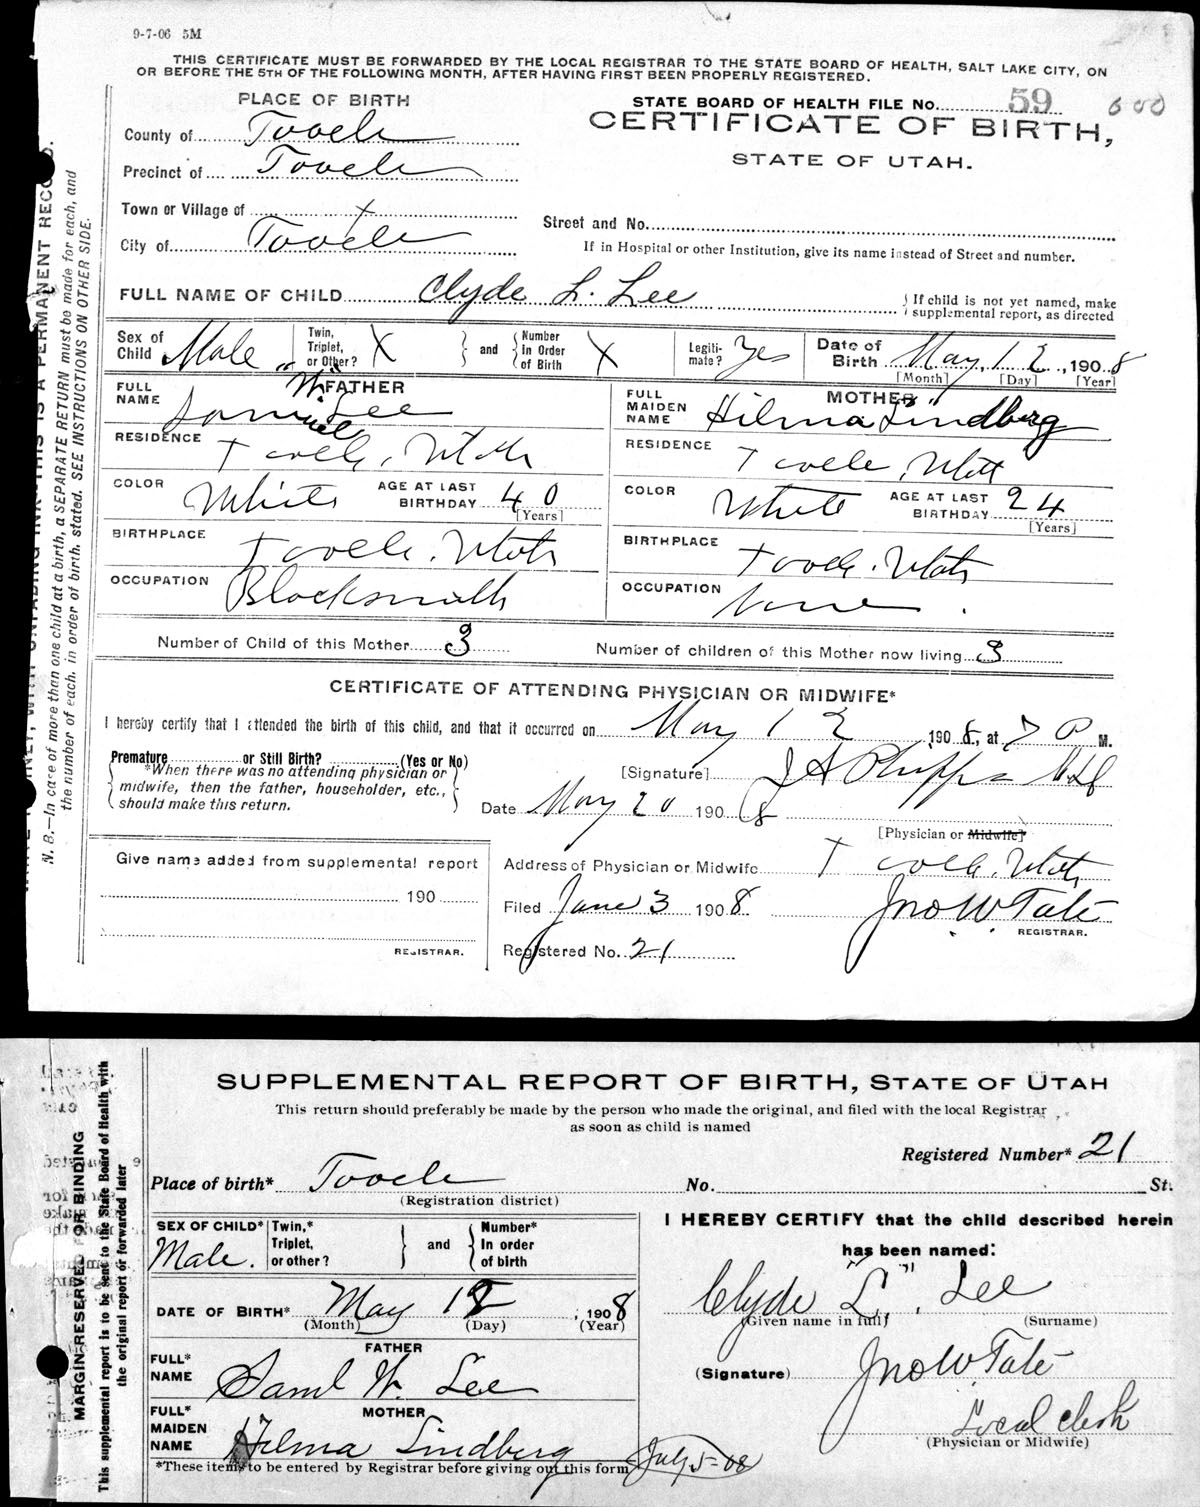 9-7-06 5M
THIS CERTIFICATE MUST BE FORWARDED BY THE LOCAL REGISTRAR TO THE STATE BOARD OF HEALTH, SALT LAKE CITY, ON
OR BEFORE THE 5TH OF THE FOLLOWING MONTH, AFTER HAVING FIRST BEEN PROPERLY REGISTERED.
PLACE OF BIRTH
STATE BOARD OF HEALTH FILE No. 59 600
CERTIFICATE OF BIRTH,
STATE OF UTAH.
County of Tooele
Precinct of Tooele
Town or Village of x
Street and No.
City of Tooele
If in Hospital or other Institution, give its name instead of Street and number.
FULL NAME OF CHILD Clyde L. Lee
If child is not yet named, make
supplemental report, as directed
Sex of Child Male
Twin, Triplet, or Other? X
and Number in Order of Birth X
Legitimate? Yes
Date of Birth May, 12, 1908
[Month] [Day] [Year]
FATHER
FULL NAME Samuel "W" Lee
MOTHER
FULL MAIDEN NAME Hilma Lindberg
RESIDENCE Tooele, Utah
RESIDENCE Tooele, Utah
COLOR White AGE AT LAST BIRTHDAY 40 [Years]
COLOR White AGE AT LAST BIRTHDAY 24 [Years]
BIRTHPLACE Tooele. Utah
BIRTHPLACE Tooele. Utah
OCCUPATION Blacksmith
OCCUPATION None.
Number of Child of this Mother 3
Number of children of this Mother now living 3
CERTIFICATE OF ATTENDING PHYSICIAN OR MIDWIFE*
I hereby certify that I attended the birth of this child, and that it occurred on May 12, 1908, at 7 P M.
Premature or Still Birth? (Yes or No)
*When there was no attending physician or
midwife, then the father, householder, etc.,
should make this return.
[Signature] J A Phipps M.D.
Date May 20 1908
[Physician or Midwife]
Give name added from supplemental report
190
REGISTRAR.
Address of Physician or Midwife Tooele. Utah
Filed June 3 1908 Jno. W. Tate
REGISTRAR.
Registered No. 21
N. B.—In case of more than one child at a birth, a SEPARATE RETURN must be made for each, and
the number of each, in order of birth, stated. SEE INSTRUCTIONS ON OTHER SIDE.
SUPPLEMENTAL REPORT OF BIRTH, STATE OF UTAH
This return should preferably be made by the person who made the original, and filed with the local Registrar
as soon as child is named
Registered Number* 21
Place of birth* Tooele No. St.
(Registration district)
SEX OF CHILD* Male.
Twin,* Triplet, or other?
and Number* In order of birth
I HEREBY CERTIFY that the child described herein
has been named:
Clyde "L." Lee
(Given name in full) (Surname)
DATE OF BIRTH* May 12, 1908
(Month) (Day) (Year)
FATHER
FULL* NAME Saml W. Lee
(Signature) Jno W. Tate
Local clerk
(Physician or Midwife)
MOTHER
FULL* MAIDEN NAME Hilma Lindberg
*These items to be entered by Registrar before giving out this form July 5-08
MARGIN RESERVED FOR BINDING
This supplemental report is to be sent to the State Board of Health, with
the original report or forwarded later